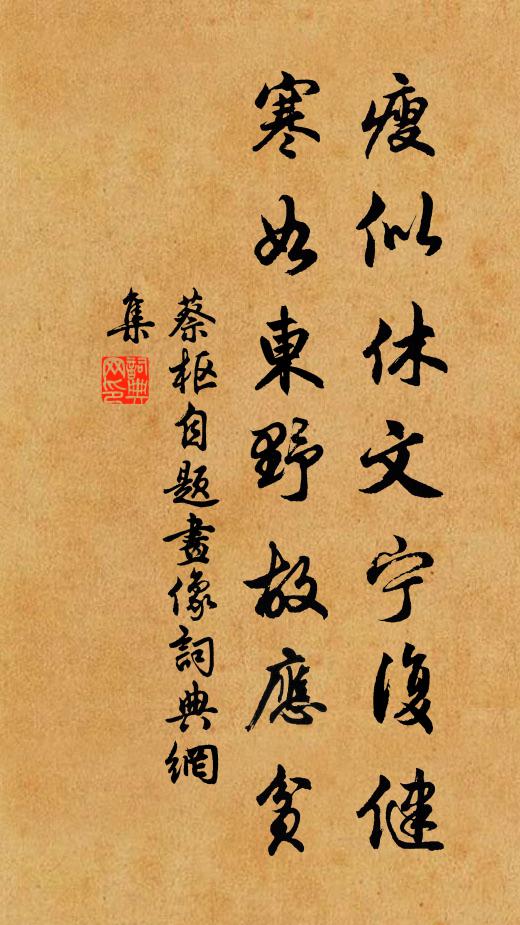 瘦似休文宁復健
寒如東野故應貧
蔡枢自题畫像詞典網
集
詞典
网印